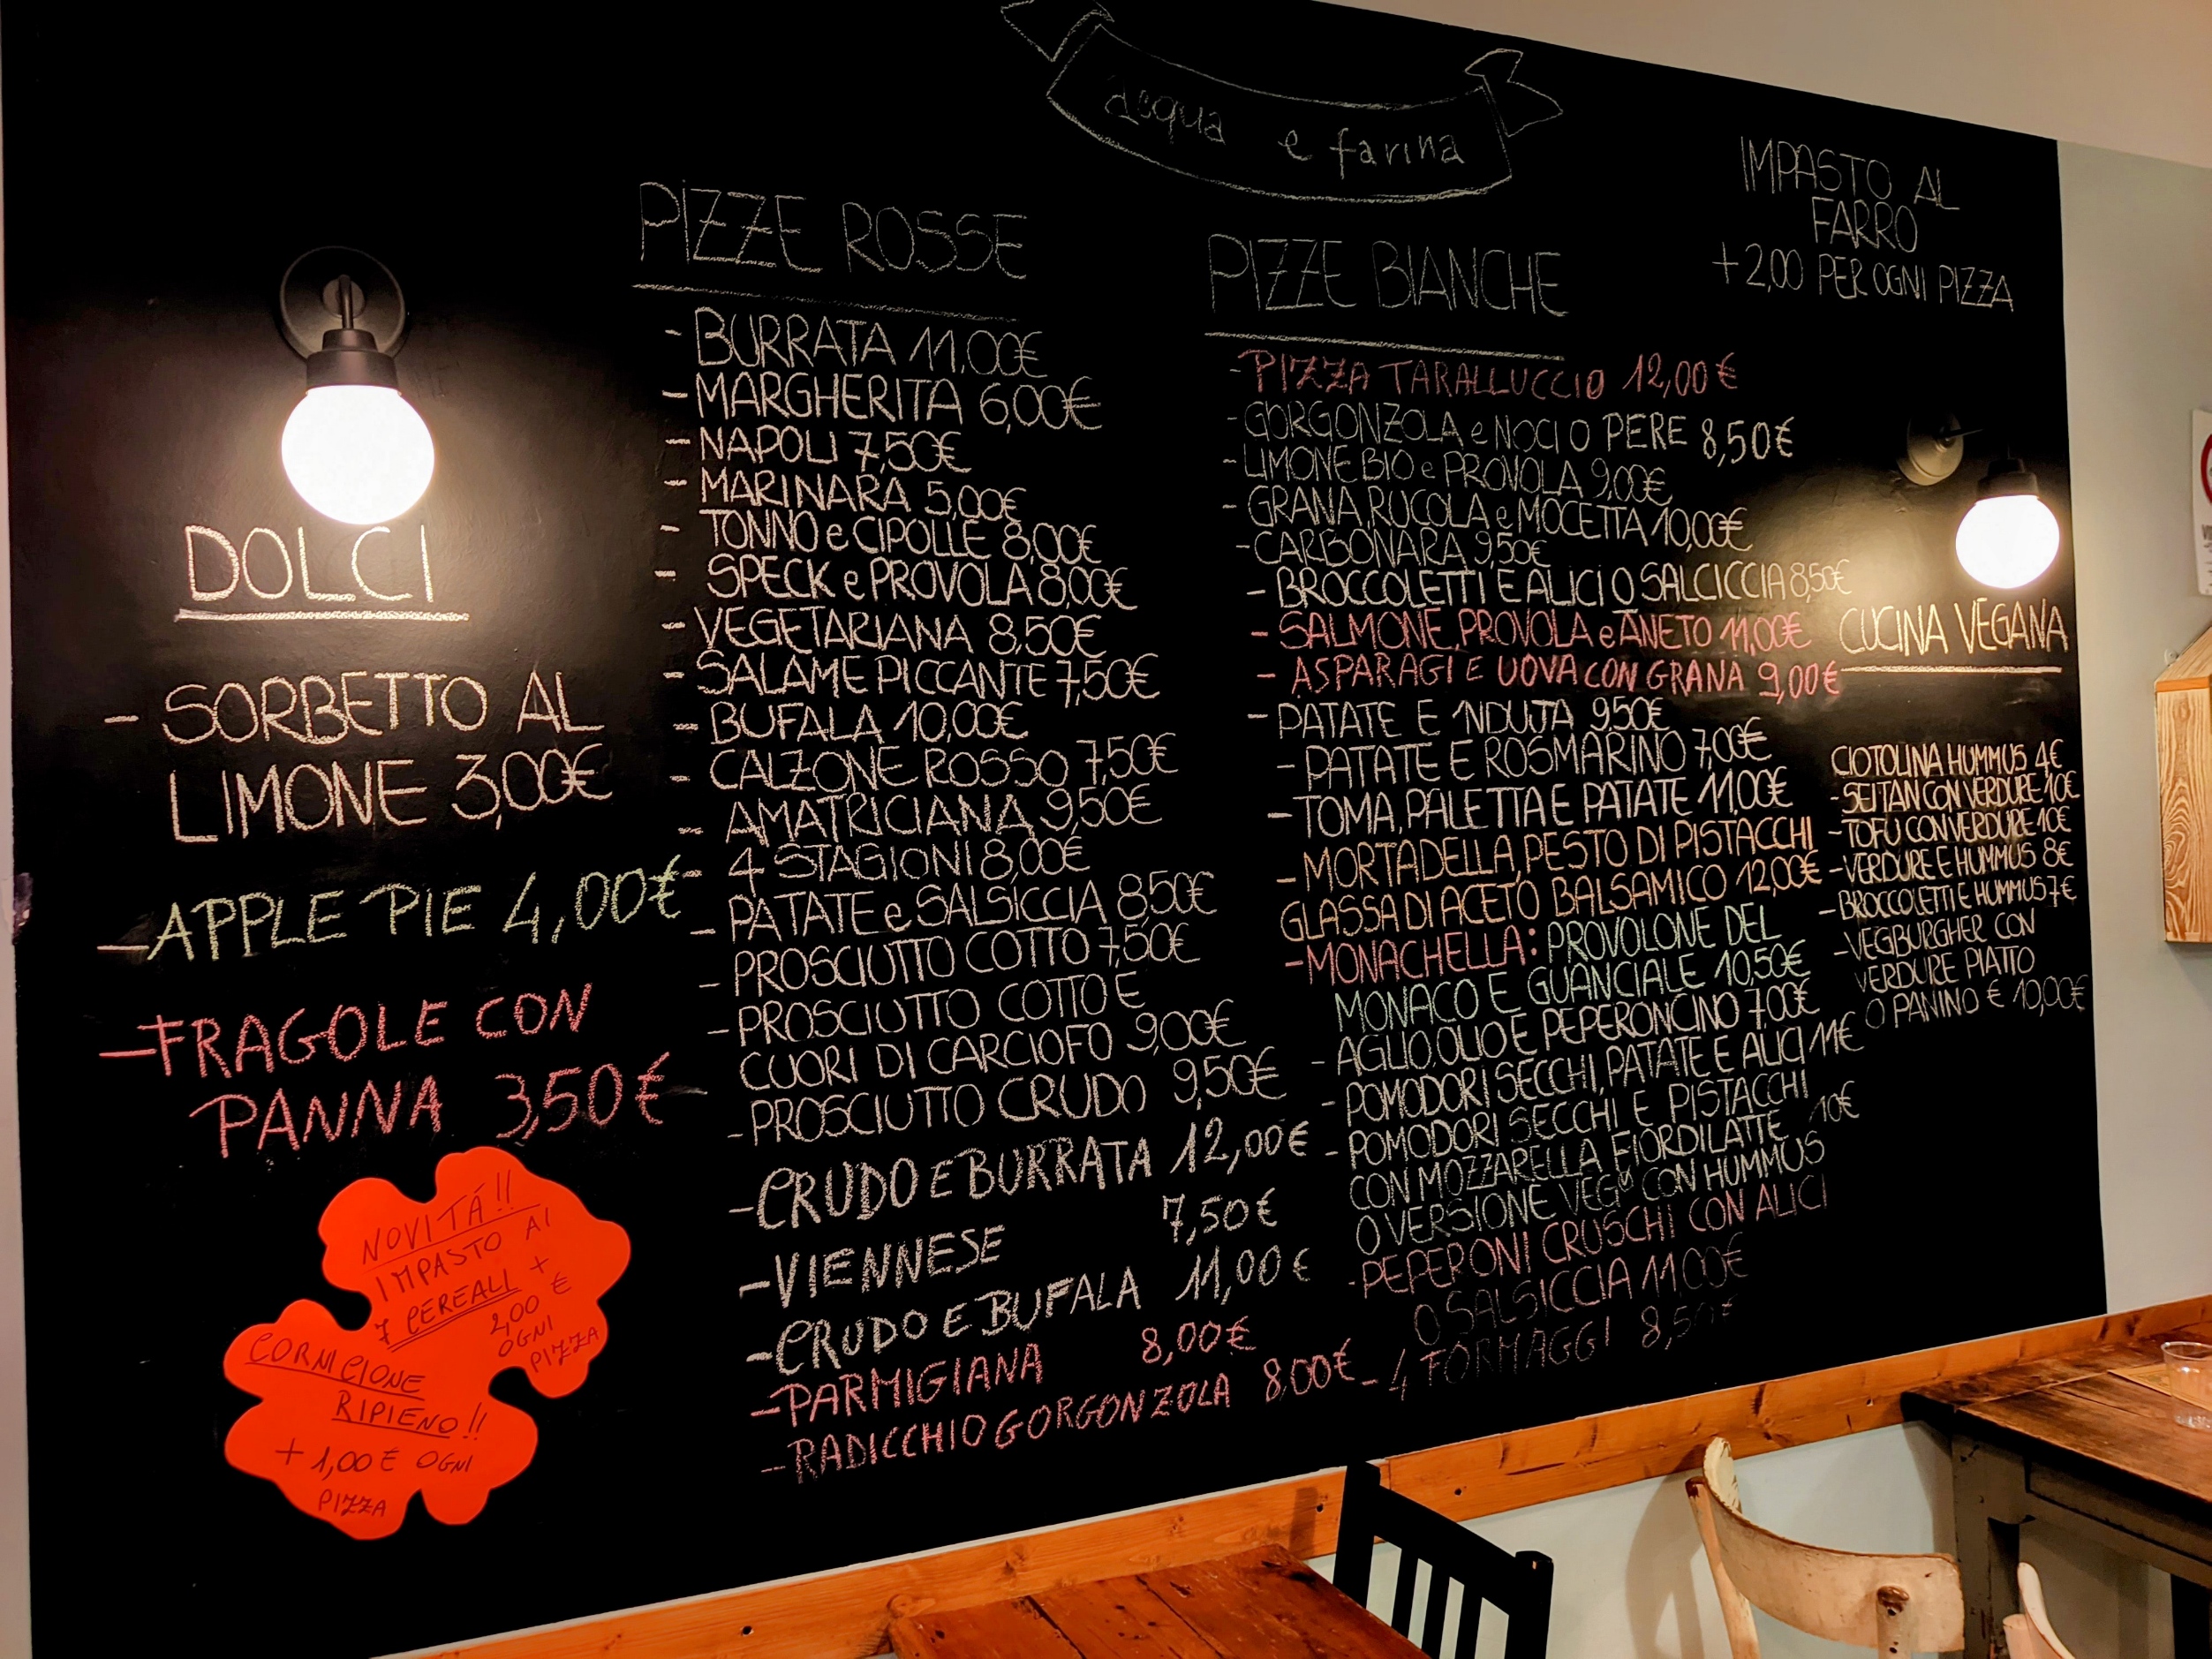 acqua e farina
DOLCI
- SORBETTO AL
LIMONE 3,00€
- APPLE PIE 4,00€
- FRAGOLE CON
PANNA 3,50€
NOVITÁ!!
IMPASTO AI
7 CEREALI +
2,00 €
OGNI
PIZZA
CORNICIONE
RIPIENO!!
+ 1,00€ OGNI
PIZZA
PIZZE ROSSE
- BURRATA 11,00€
- MARGHERITA 6,00€
- NAPOLI 7,50€
- MARINARA 5,00€
- TONNO e CIPOLLE 8,00€
- SPECK e PROVOLA 8,00€
- VEGETARIANA 8,50€
- SALAME PICCANTE 7,50€
- BUFALA 10,00€
- CALZONE ROSSO 7,50€
- AMATRICIANA 9,50€
- 4 STAGIONI 8,00€
- PATATE e SALSICCIA 8,50€
- PROSCIUTTO COTTO 7,50€
- PROSCIUTTO COTTO E
CUORI DI CARCIOFO 9,00€
- PROSCIUTTO CRUDO 9,50€
- CRUDO E BURRATA 12,00€
- VIENNESE 7,50€
- CRUDO E BUFALA 11,00€
- PARMIGIANA 8,00€
- RADICCHIO GORGONZOLA 8,00€
PIZZE BIANCHE
- PIZZA TARALLUCCIO 12,00€
- GORGONZOLA e NOCI O PERE 8,50€
- LIMONE BIO e PROVOLA 9,00€
- GRANA, RUCOLA e MOCETTA 10,00€
- CARBONARA 9,50€
- BROCCOLETTI E ALICI O SALCICCIA 8,50€
- SALMONE, PROVOLA e ANETO 11,00€
- ASPARAGI E UOVA CON GRANA 9,00€
- PATATE E 'NDUJA 9,50€
- PATATE E ROSMARINO 7,00€
- TOMA, PALETTA E PATATE 11,00€
- MORTADELLA, PESTO DI PISTACCHI
GLASSA DI ACETO BALSAMICO 12,00€
- MONACHELLA: PROVOLONE DEL
MONACO E GUANCIALE 10,50€
- AGLIO, OLIO E PEPERONCINO 7,00€
- POMODORI SECCHI, PATATE E ALICI 11€
- POMODORI SECCHI E PISTACCHI
CON MOZZARELLA FIORDILATTE 10€
O VERSIONE VEG CON HUMMUS
- PEPERONI CRUSCHI CON ALICI
O SALSICCIA 11,00€
- 4 FORMAGGI 8,50€
IMPASTO AL
FARRO
+2,00 PER OGNI PIZZA
CUCINA VEGANA
CIOTOLINA HUMMUS 4€
- SEITAN CON VERDURE 10€
- TOFU CON VERDURE 10€
- VERDURE E HUMMUS 8€
- BROCCOLETTI E HUMMUS 7€
- VEGBURGHER CON
VERDURE PIATTO
O PANINO € 10,00€